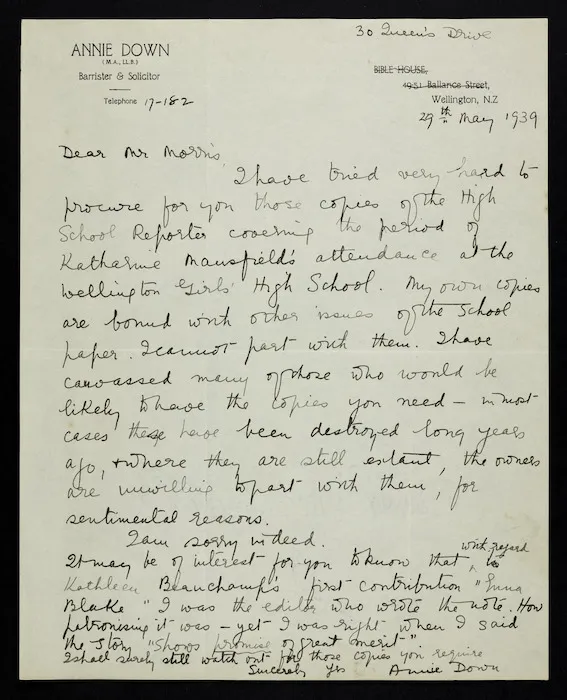 30 Queen's Drive
ANNIE DOWN
(M.A., LL.B.)
Barrister & Solicitor
Telephone 17-182
BIBLE HOUSE,
Ballance Street,
Wellington, N.Z
29th May 1939
Dear Mr Morris,
I have tried very hard to
procure for you those copies of the High
School Reporter covering the period of
Katharine Mansfield's attendance at the
Wellington Girls' High School. My own copies
are bound with other issues of the School
paper. I cannot part with them. I have
canvassed many of those who would be
likely to have the copies you need – in most
cases these have been destroyed long years
ago, & where they are still extant, the owners
are unwilling to part with them, for
sentimental reasons.
I am sorry indeed.
It may be of interest for you to know that, with regard
Kathleen Beauchamp's first contribution "Enna
Blake" I was the editor who wrote the note. How
patronising it was – yet I was right when I said
the story "Shows promise of great merit"
I shall surely still watch out for those copies you require
Sincerely Yrs Annie Down